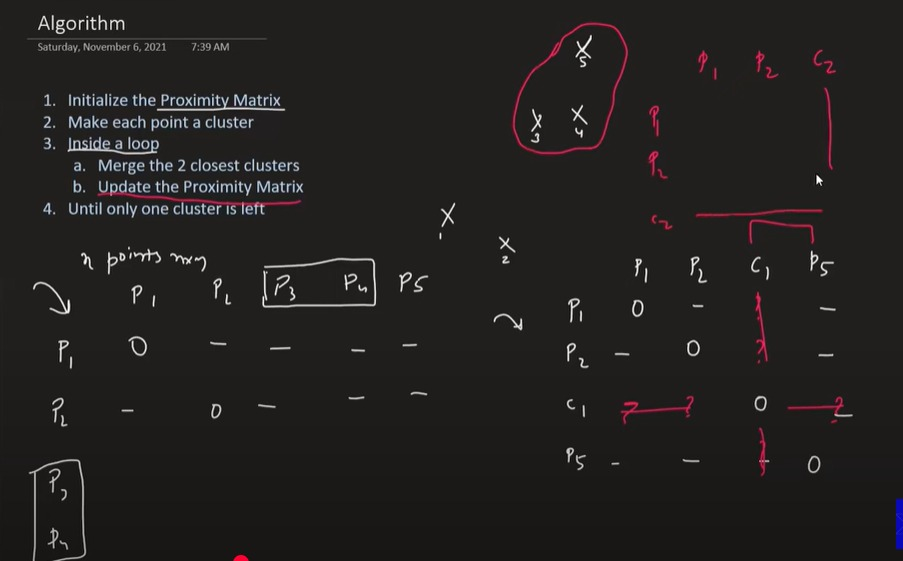 Algorithm
Saturday, November 6, 2021 7:39 AM
1. Initialize the Proximity Matrix
2. Make each point a cluster
3. Inside a loop
a. Merge the 2 closest clusters
b. Update the Proximity Matrix
4. Until only one cluster is left
X 5
X 3 X 4
X 1
X 2
P1 P2 C2
P1
P2
C2
n points nxn
P1 P2 P3 P4 P5
P1 0 - - - -
P2 - 0 - - -
P3
P4
P1 P2 C1 P5
P1 0 - ? -
P2 - 0 ? -
C1 ? ? 0 ?
P5 - - ? 0